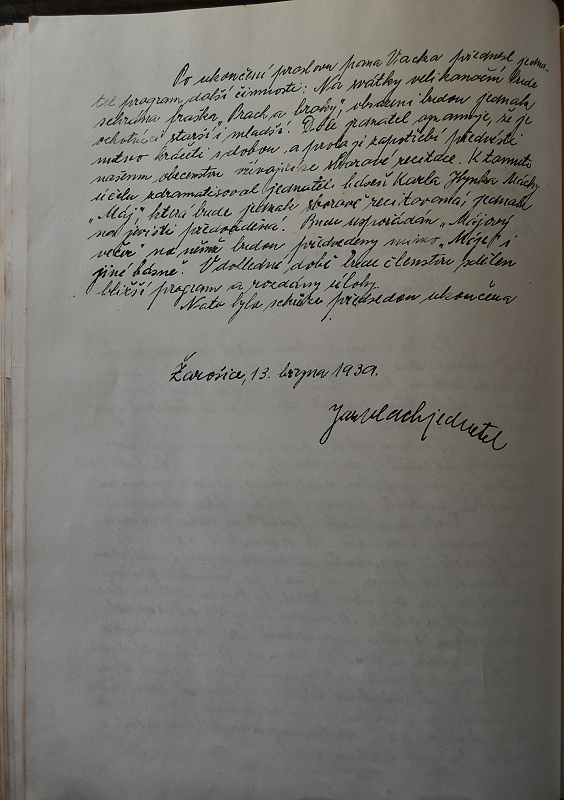 Po ukončení proslovu pana Vacka přednesl jedna-
tel program další činnosti: Na svátky velikonoční bude
sehrána fraška, "Prach a broky", obsazeni budou jednak
ochotníci starší i mladší. Dále jednatel oznamuje, že je
nutno kráčeti s dobou a proto je zapotřebí předvésti
našemu obecenstvu sborové recitace. K tomuto
účelu zdramatisoval jednatel báseň Karla Hynka Máchy
"Máj", která bude jednak sborově recitována, jednak
na jevišti předváděna. Bude uspořádán "Májový
večer" na němž budou předvedeny mimo "Máje" i
jiné básně. V dohledné době bude členstvu sdělen
bližší program a rozdány úlohy.
Nato byla schůze předsedou ukončena
Žarošice, 13. března 1939.
Jan Vlach jednatel